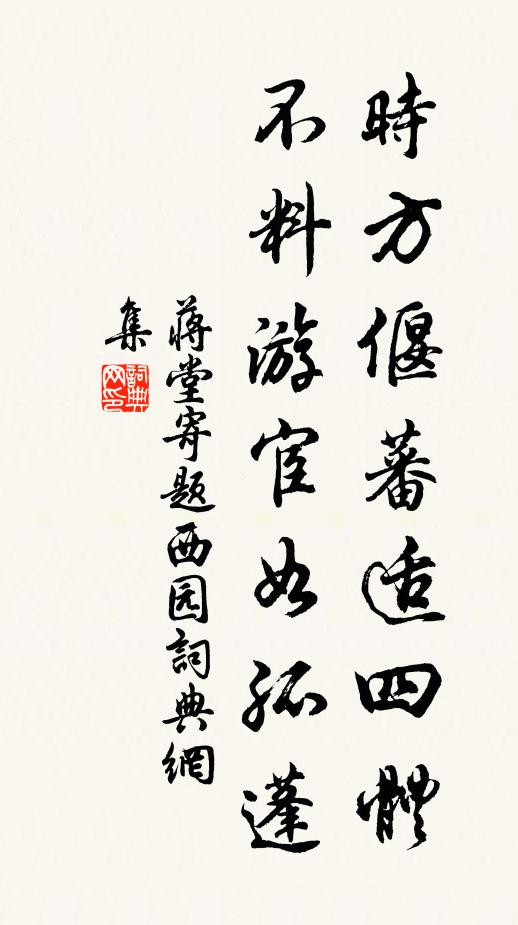 時方偃蕃适四體
不料游宦如孤蓬
蔣堂寄题西园詞典網
集
詞典
网印